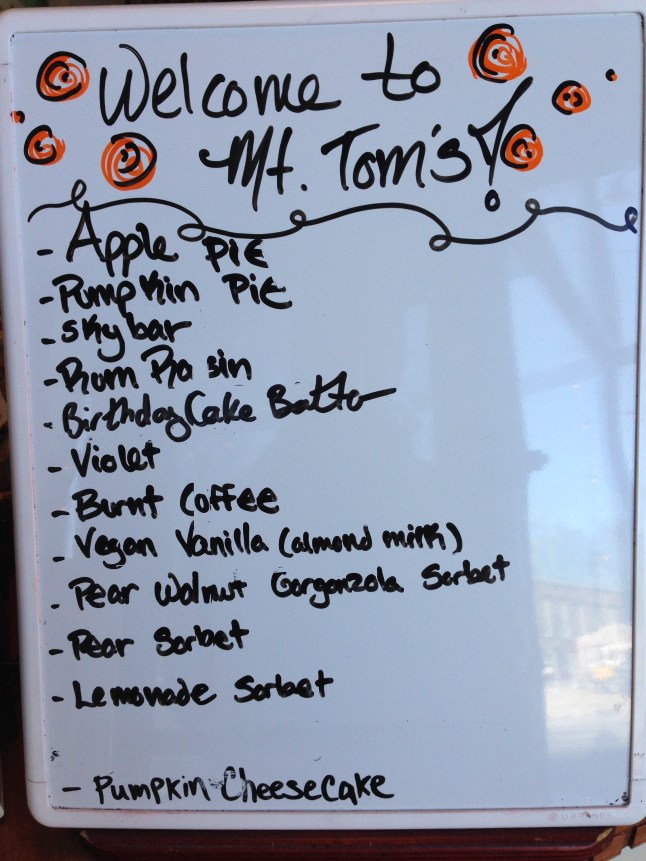 Welcome to
Mt. Tom's!
- Apple Pie
- Pumpkin Pie
- Skybar
- Rum Raisin
- Birthday Cake Batter
- Violet
- Burnt Coffee
- Vegan Vanilla (almond milk)
- Pear Walnut Gorgonzola Sorbet
- Pear Sorbet
- Lemonade Sorbet
- Pumpkin Cheesecake
U BRANDS